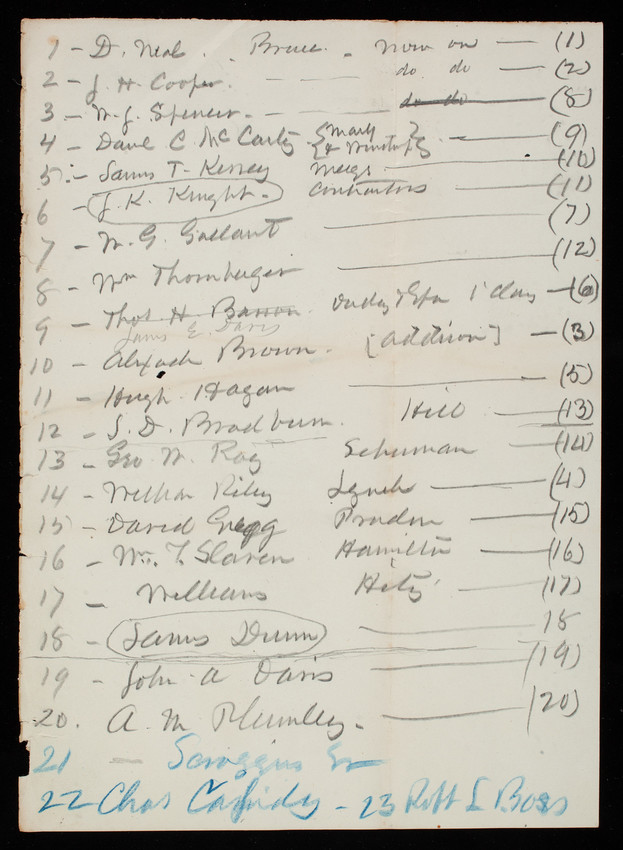 1 - D. Neal. Bruce - now on — (1)
2 - J. H. Cooper. — do do — (2)
3 - W. J. Spencer. — do do — (8)
4 - Dave C. McCarty {Mark & Winston} — (9)
5 - James T. Kersey Meigs — (10)
6 - J. K. Knight - Contractors — (11)
7 - W. G. Gallant — (7)
8 - Wm Thornberger — (12)
9 - Thos H Barron. 1 Class — (6)
James E. Davis
10 - Brown. [addison] — (3)
11 - Hugh Hagan — (5)
12 - S. D. Bradburn. Hill — (13)
13 - Geo. W. Ray Schuman — (14)
14 - William Riley Lynch — (4)
15 - David Gregg — (15)
16 - Wm. T. Slaven Hamilton — (16)
17 - Williams — (17)
18 - James Dunn — 18
19 - John A Davis — (19)
20. A. M Plumley - — (20)
21 - Scroggins
22 Chas Cassidy - 23 Robt L Boss